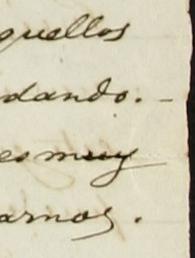 quellos
dando. –
es muy
arnos.